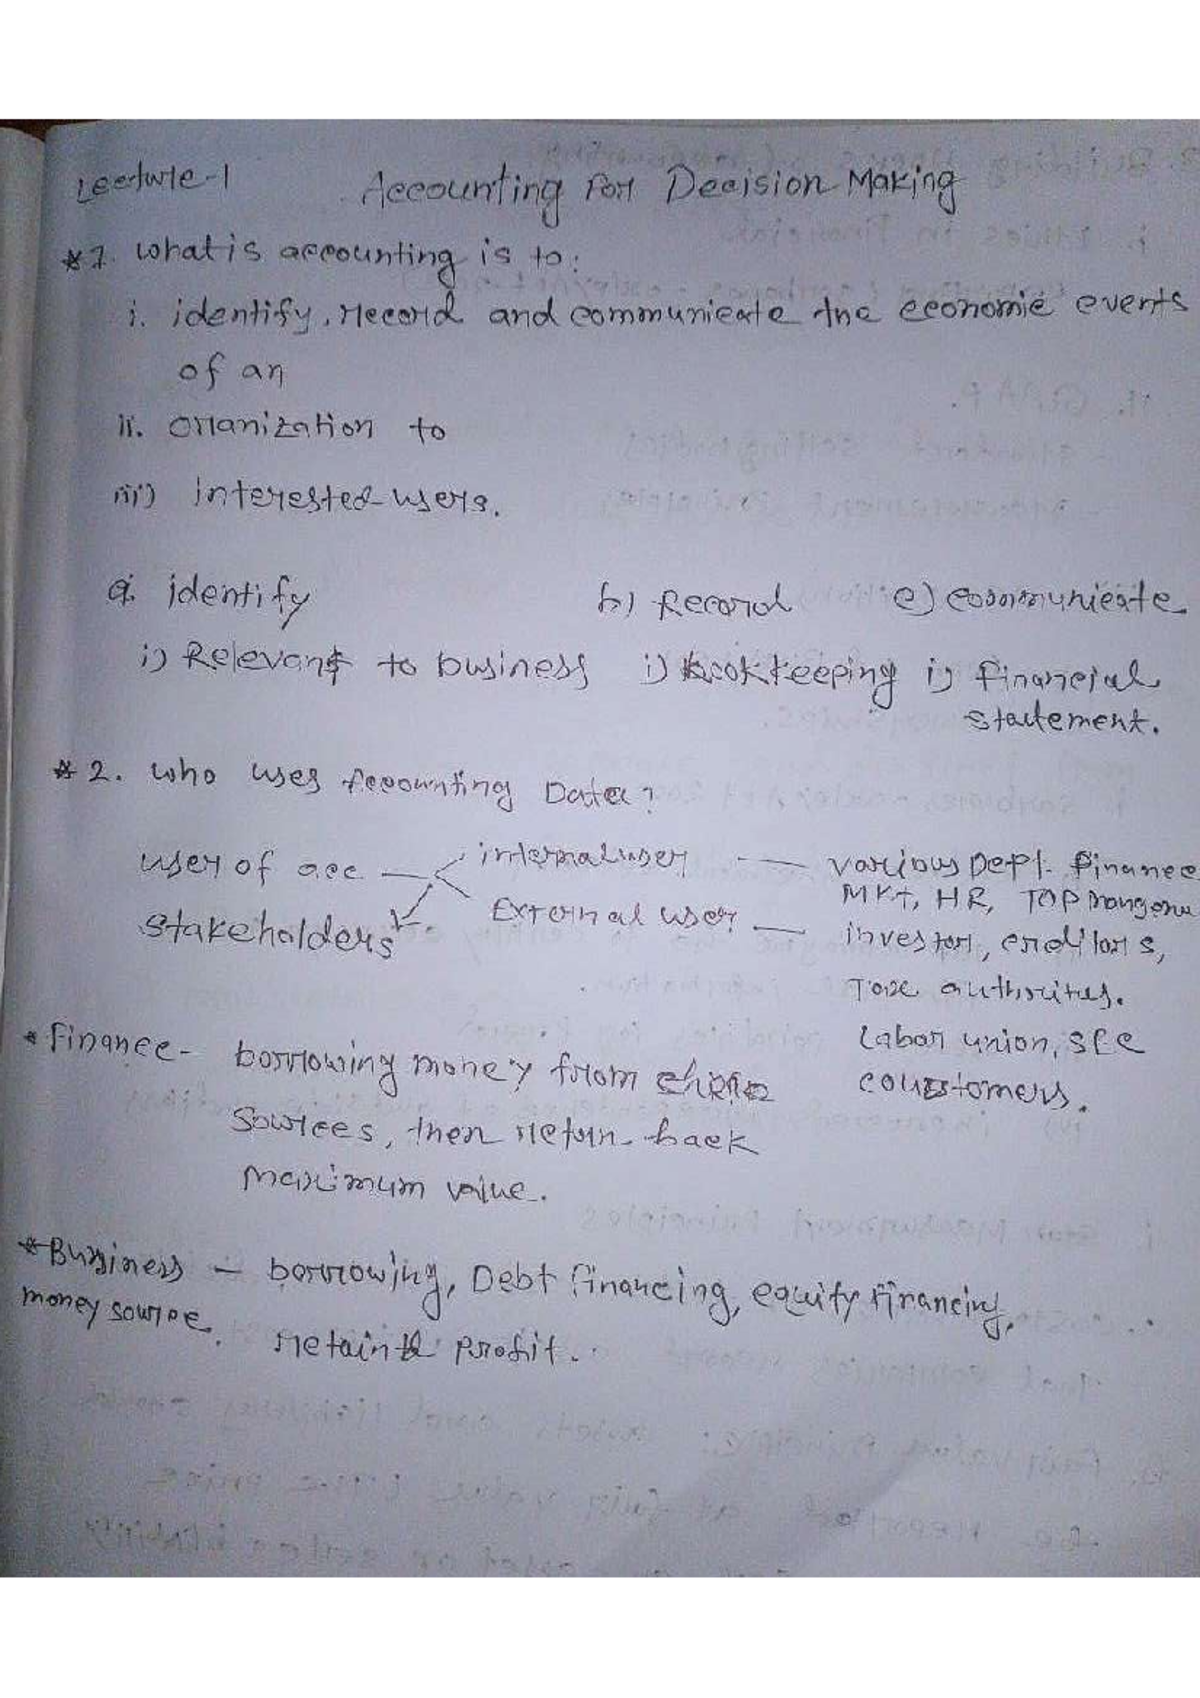 Lecture-1 Accounting For Decision Making
*1. What is accounting is to:
i. identify, record and communicate the economic events
of an
ii. organization to
iii) interested users.
a. identify b) Record c) communicate
i) Relevant to business i) bookkeeping i) financial
statement.
*2. Who uses Accounting Data?
user of acc internal user — various Dept. finance
MKT, HR, TOP
stakeholders External user — investor, creditors,
Tax authorities.
Labor union, SEC
coustomers.
* Finance - borrowing money from
sources, then return back
maximum value.
* Business — borrowing, Debt financing, equity financing,
money source. retain profit.